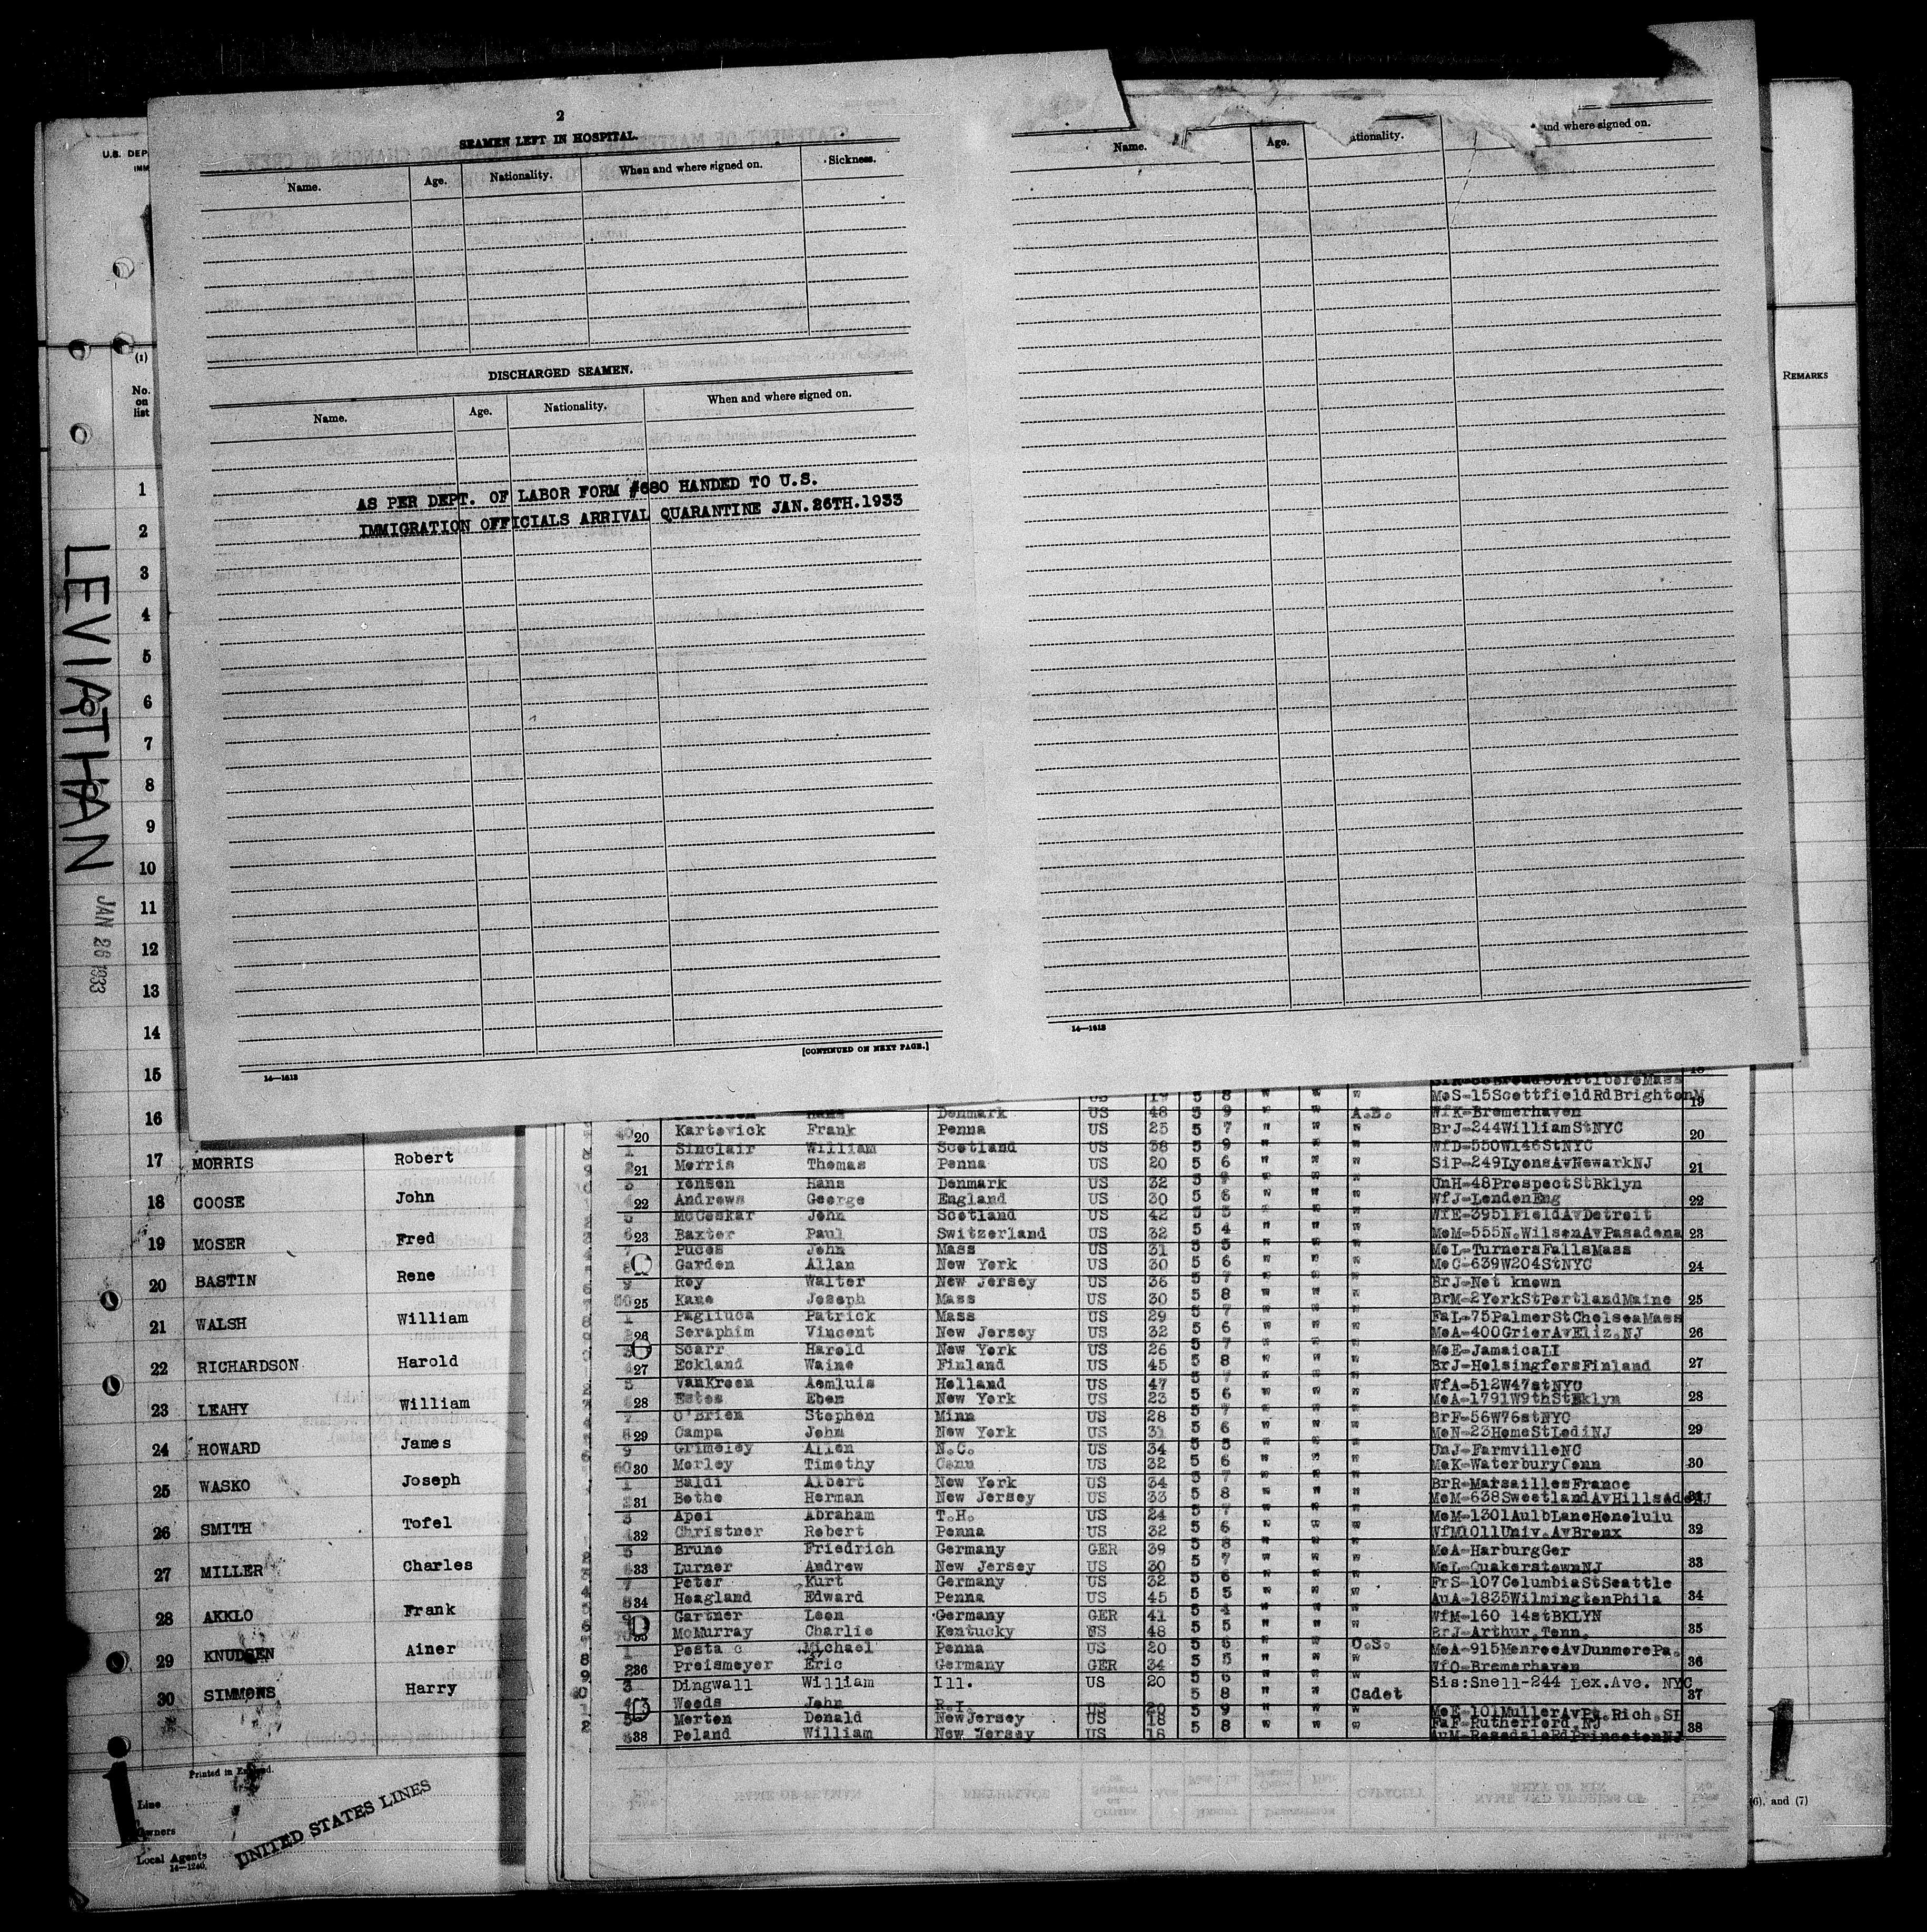 2
SEAMEN LEFT IN HOSPITAL.
Name. Age. Nationality. When and where signed on. Sickness.
DISCHARGED SEAMEN.
Name. Age. Nationality. When and where signed on.
AS PER DEPT. OF LABOR FORM #680 HANDED TO U.S.
IMMIGRATION OFFICIALS ARRIVAL QUARANTINE JAN.26TH.1933
[CONTINUED ON NEXT PAGE.]
14—1613
Name. Age. ationality. and where signed on.
14—1613
U.S. DEP
IMM
(1)
No. on list
REMARKS
LEVIATHAN
JAN 26 1933
1
2
3
4
5
6
7
8
9
10
11
12
13
14
15
16
17 MORRIS Robert
18 COOSE John
19 MOSER Fred
20 BASTIN Rene
21 WALSH William
22 RICHARDSON Harold
23 LEAHY William
24 HOWARD James
25 WASKO Joseph
26 SMITH Tofel
27 MILLER Charles
28 AKKLO Frank
29 KNUDSEN Ainer
30 SIMMONS Harry
Printed in
Line
Owners
Local Agents
14—1240
UNITED STATES LINES
US 19 5 8 " " " MoS-15ScottfieldRdBrighton 19
Denmark US 48 5 9 " " A.B. WfK-Bremerhaven
20 Kartovick Frank Penna US 23 5 7 " " " BrJ-244WilliamStNYC 20
Sinclair William Scotland US 38 5 9 " " " WfD-550W146StNYC
21 Morris Thomas Penna US 20 5 6 " " " SiP-249LyonsAvNewarkNJ 21
Yensen Hans Denmark US 32 5 " " " UnH-48ProspectStBklyn
22 Andrews George England US 30 5 6 " " " WfJ-LondonEng 22
McCoskar John Scotland US 42 5 5 " " " WfE-3951FieldAvDetroit
23 Baxter Paul Switzerland US 32 5 4 " " " MoM-555N.WilsonAvPasadena 23
Puces John Mass US 31 5 5 " " " MoL-TurnersFallsMass
Garden Allan New York US 30 5 6 " " " MoC-639W204StNYC 24
Roy Walter New Jersey US 36 5 7 " " " BrJ-Not known
25 Kane Joseph Mass US 30 5 8 " " " BrM-2YorkStPortlandMaine 25
Pagliuca Patrick Mass US 29 5 7 " " " FaL-75PalmerStChelseaMass
26 Seraphim Vincent New Jersey US 32 5 6 " " " MoA-400GrierAvEliz.NJ 26
Scarr Harold New York US 26 5 7 " " " MoE-JamaicaLI
27 Eckland Waino Finland US 45 5 8 " " " BrJ-HelsingforsFinland 27
VanKroon Aemluis Holland US 47 5 7 " " " WfA-512W47stNYC
28 Estes Eben New York US 23 5 6 " " " MoA-1791W9thStBklyn 28
O'Brien Stephen Minn US 28 5 7 " " " BrF-56W76stNYC
29 Campa John New York US 31 5 6 " " " MoN-23HomeStLodiNJ 29
Grimsley Allen N.C. US 34 5 5 " " " UnJ-FarmvilleNC
30 Morley Timothy Conn US 32 5 6 " " " MoK-WaterburyConn 30
Baldi Albert New York US 34 5 7 " " " BrR-MarsaillesFrance
31 Bothe Herman New Jersey US 33 5 8 " " " MoM-638SweetlandAvHillsdeNJ 31
Apei Abraham T.H. US 24 5 7 " " " MoM-1301AulbLaneHonolulu
32 Christner Robert Penna US 32 5 6 " " " WfM1011Univ.AvBronx 32
Bruno Friedrich Germany GER 39 5 8 " " " MoA-HarburgGer
33 Lurner Andrew New Jersey US 30 5 7 " " " MoL-QuakerstownNJ 33
Peter Kurt Germany US 32 5 6 " " " FrS-107ColumbiaStSeattle
34 Hoagland Edward Penna US 45 5 5 " " " AuA-1835WilmingtonPhila 34
Gartner Leon Germany GER 41 5 4 " " " WfM-160 14stBKLYN
McMurray Charlie Kentucky US 48 5 5 " " " BrJ-Arthur,Tenn. 35
Pesta Michael Penna US 20 5 5 " " O.S. MoA-915MonroeAvDunmorePa.
36 Preismeyer Eric Germany GER 34 5 5 " " " WfO-Bremerhaven 36
Dingwall William Ill. US 20 5 6 " " " Sis:Snell-244 Lex.Ave. NYC
Woods John R.I. US 20 5 8 " " Cadet MoE-101MullerAvPt.Rich.SI 37
Morton Donald NewJersey US 18 5 9 " " " FaF-Rutherford,NJ
38 Poland William New Jersey US 18 5 8 " " " AuM-RosedaleRdPrincetonNJ 38
(6), and (7)